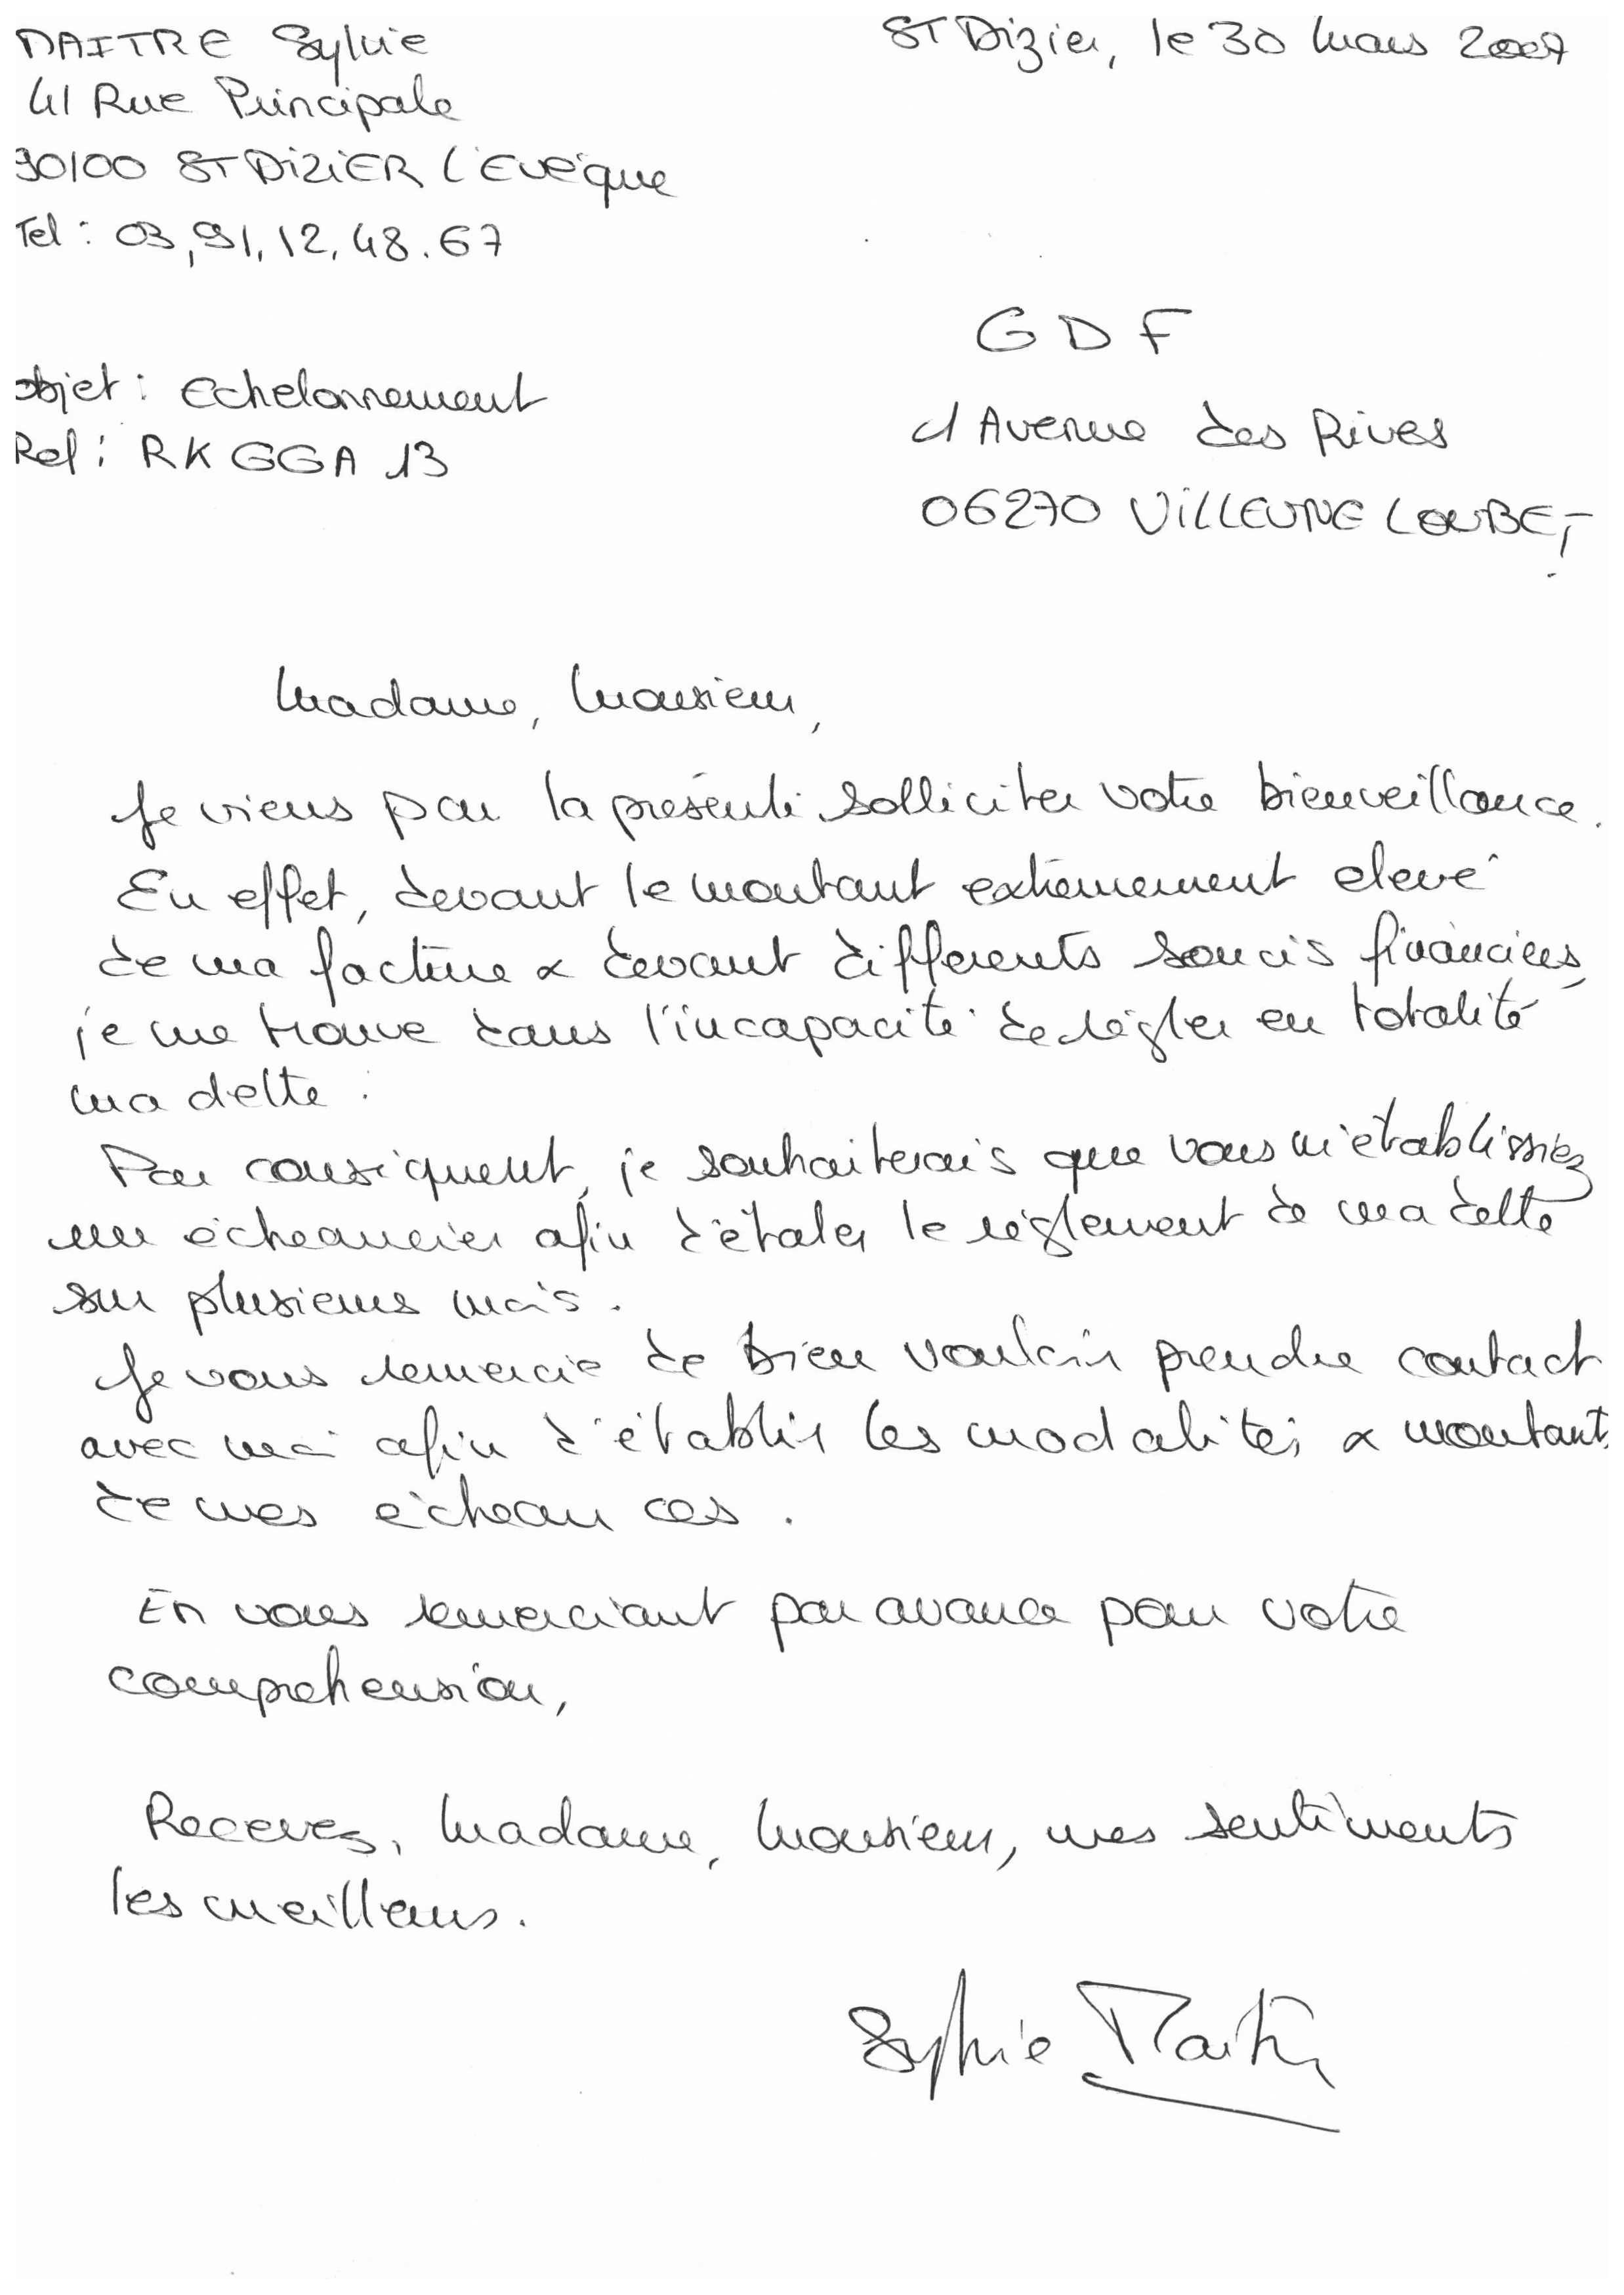 MAITRE Sylvie
St Dizier, le 30 mars 2007
41 Rue Principale
90100 ST DIZIER L'Evêque
Tel : 03,91,12,48.67
GDF
objet : Echelonnement
1 Avenue des Rives
Ref : RKGGA 13
06270 VILLEUNE LOUBET
Madame, Monsieur,
Je viens par la présente solliciter votre bienveillance.
En effet, devant le montant extrêmement élevé
de ma facture & devant différents soucis financiers,
je me trouve dans l'incapacité de régler en totalité
ma dette.
Par conséquent, je souhaiterais que vous m'établissiez
un échéancier afin d'étaler le règlement de ma dette
sur plusieurs mois.
Je vous remercie de bien vouloir prendre contact
avec moi afin d'établir les modalités & montants
de mes échéances.
En vous remerciant par avance pour votre
compréhension,
Recevez, Madame, Monsieur, mes sentiments
les meilleurs.
Sylvie Maitre